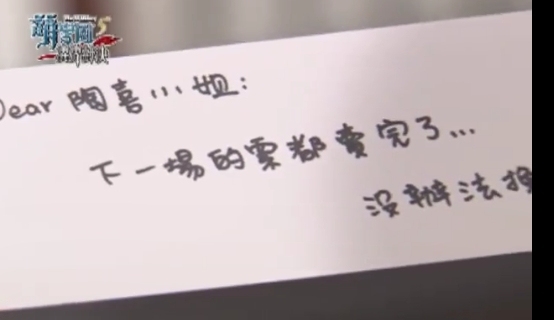 萌學園5
Dear 陶喜...姐:
下一場的票都賣完了...
沒辦法換